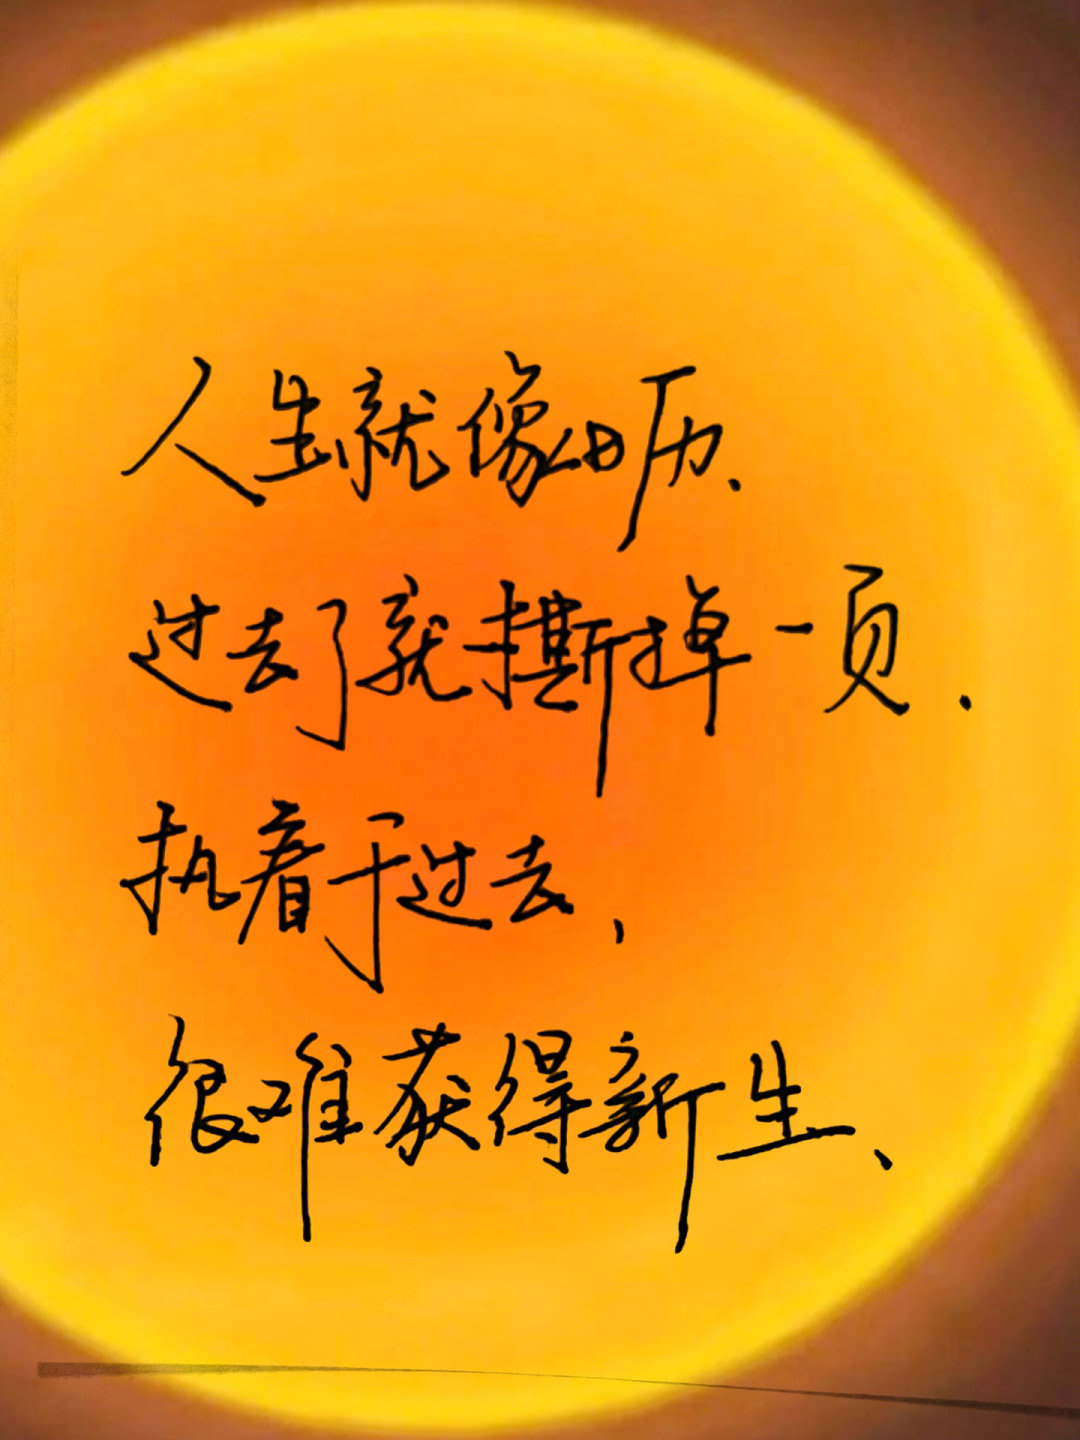 人生就像日历、
过去了就撕掉一页.
执着于过去,
很难获得新生、